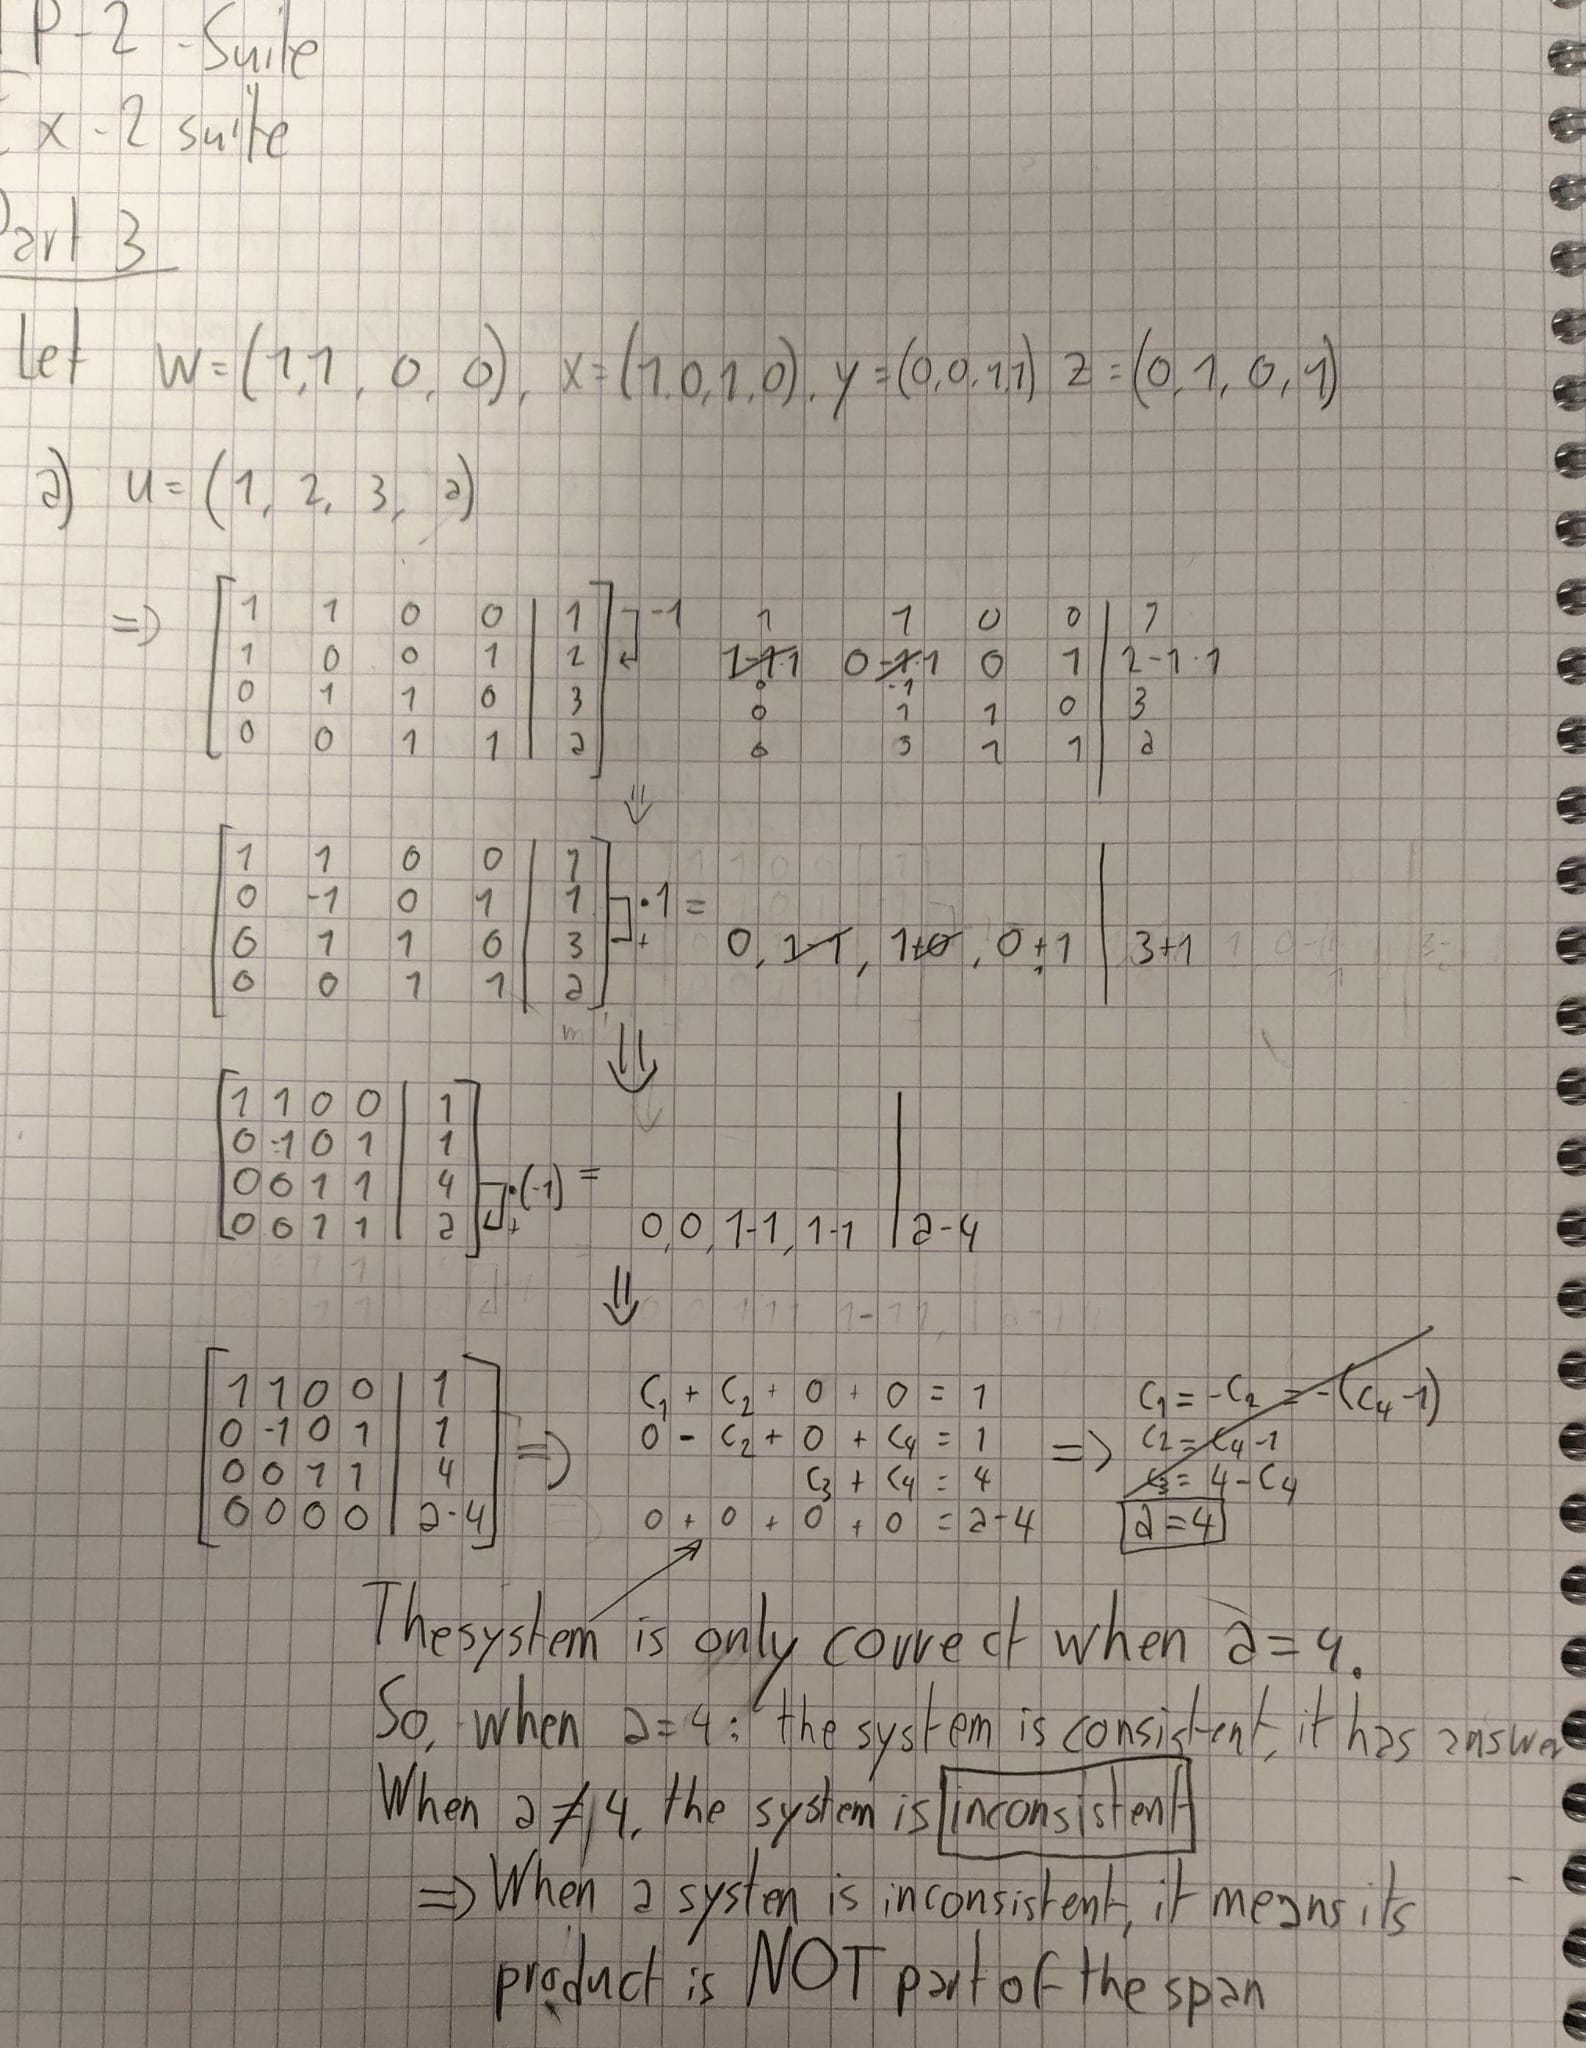 P-2 -Suite
x-2 suite
Part 3
Let W=(1,1,0,0), x=(1,0,1,0), y=(0,0,1,1) z=(0,1,0,1)
a) u=(1, 2, 3, a)
=> [ 1 1 0 0 | 1 ] -1 1 1 0 0 | 1
1 0 0 1 | 2 1-1·1 0-1·1 0 1 | 2-1·1
0 -1
0 1 1 0 | 3 0 1 1 0 | 3
0 0 1 1 | a 0 0 1 1 | a
⇓
[ 1 1 0 0 | 1 ]
0 -1 0 1 | 1 ·1 =
0 1 1 0 | 3 + 0, 1-1, 1+0, 0+1 | 3+1
0 0 1 1 | a
⇓
[ 1 1 0 0 | 1 ]
0 -1 0 1 | 1
0 0 1 1 | 4 ·(-1) =
0 0 1 1 | a + 0, 0, 1-1, 1-1 | a-4
⇓
[ 1 1 0 0 | 1 ] C1 + C2 + 0 + 0 = 1 C1 = -C2 = -(C4-1)
0 -1 0 1 | 1 => 0 - C2 + 0 + C4 = 1 => C2 = C4-1
0 0 1 1 | 4 C3 + C4 = 4 C3 = 4-C4
0 0 0 0 | a-4 0 + 0 + 0 + 0 = a-4 a=4
The system is only correct when a=4.
So, when a=4: the system is consistent, it has answer
When a≠4, the system is inconsistent
=> When a systen is inconsistent, it means its
product is NOT part of the span